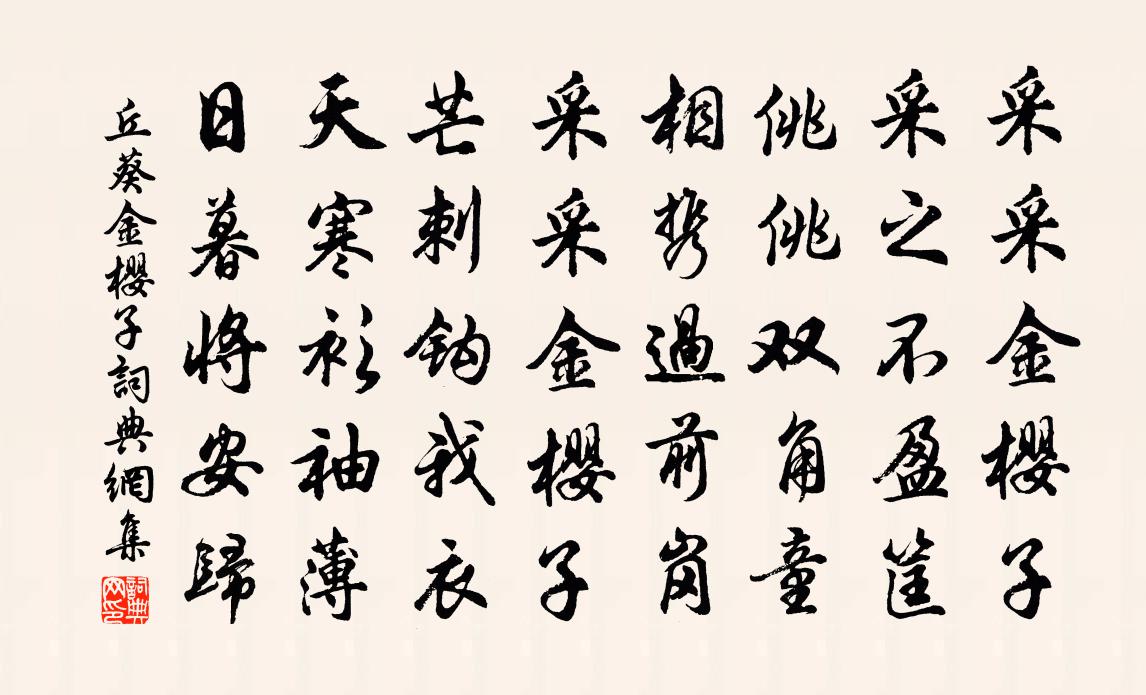 采采金櫻子
采之不盈筐
佻佻双角童
相携過前岗
采采金櫻子
芒刺鈎我衣
天寒衫袖薄
日暮将安歸
丘葵金櫻子詞典網集
詞典网印